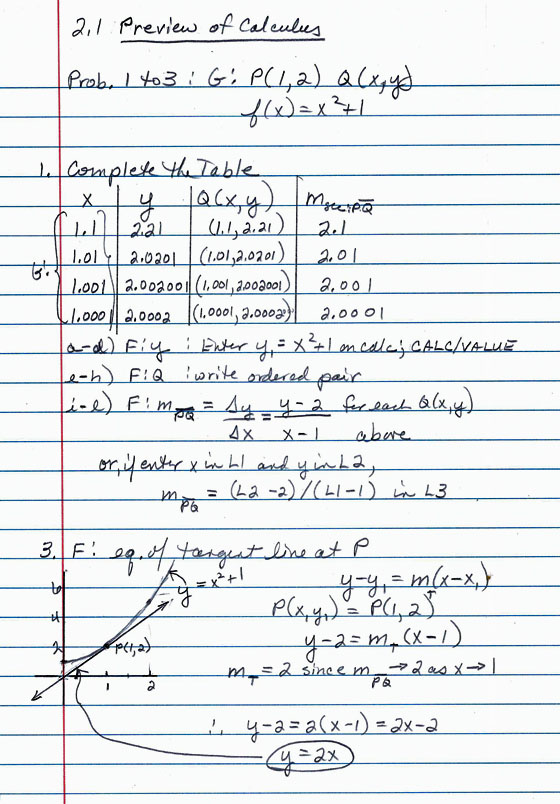 2.1 Preview of Calculus
Prob. 1 to 3 : G: P(1,2) Q(x,y)
f(x) = x²+1
1. Complete the Table
x y Q(x,y) m sec PQ
1.1 2.21 (1.1, 2.21) 2.1
1.01 2.0201 (1.01, 2.0201) 2.01
G: 1.001 2.002001 (1.001, 2.002001) 2.001
1.0001 2.0002 (1.0001, 2.0002) 2.0001
a-d) F: y : Enter y₁ = x²+1 on calc; CALC/VALUE
e-h) F: Q : write ordered pair
i-l) F: m PQ = Δy/Δx = (y-2)/(x-1) for each Q(x,y)
above
or, if enter x in L1 and y in L2,
m PQ = (L2-2)/(L1-1) in L3
3. F: eq. of tangent line at P
6
4
2
1 2
y = x²+1
P(1,2)
y-y₁ = m(x-x₁)
P(x,y₁) = P(1,2)
y-2 = m_T(x-1)
m_T = 2 since m PQ → 2 as x → 1
∴ y-2 = 2(x-1) = 2x-2
y = 2x